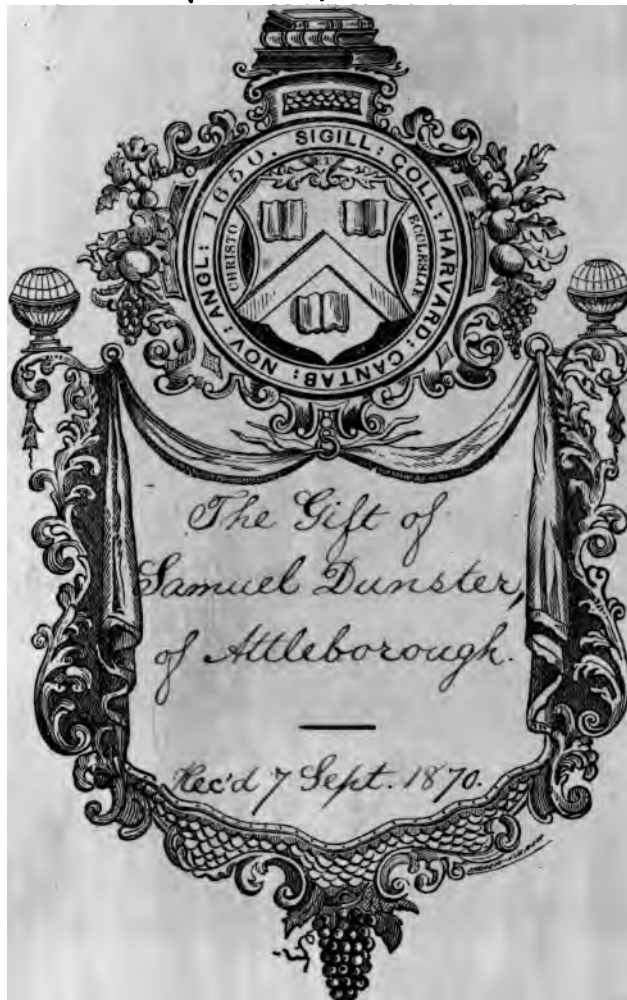 SIGILL: COLL: HARVARD: CANTAB: NOV: ANGL: 1650.
ET
CHRISTO
ECCLESIAE
The Gift of
Samuel Dunster,
of Attleborough.
Rec'd 7 Sept. 1870.